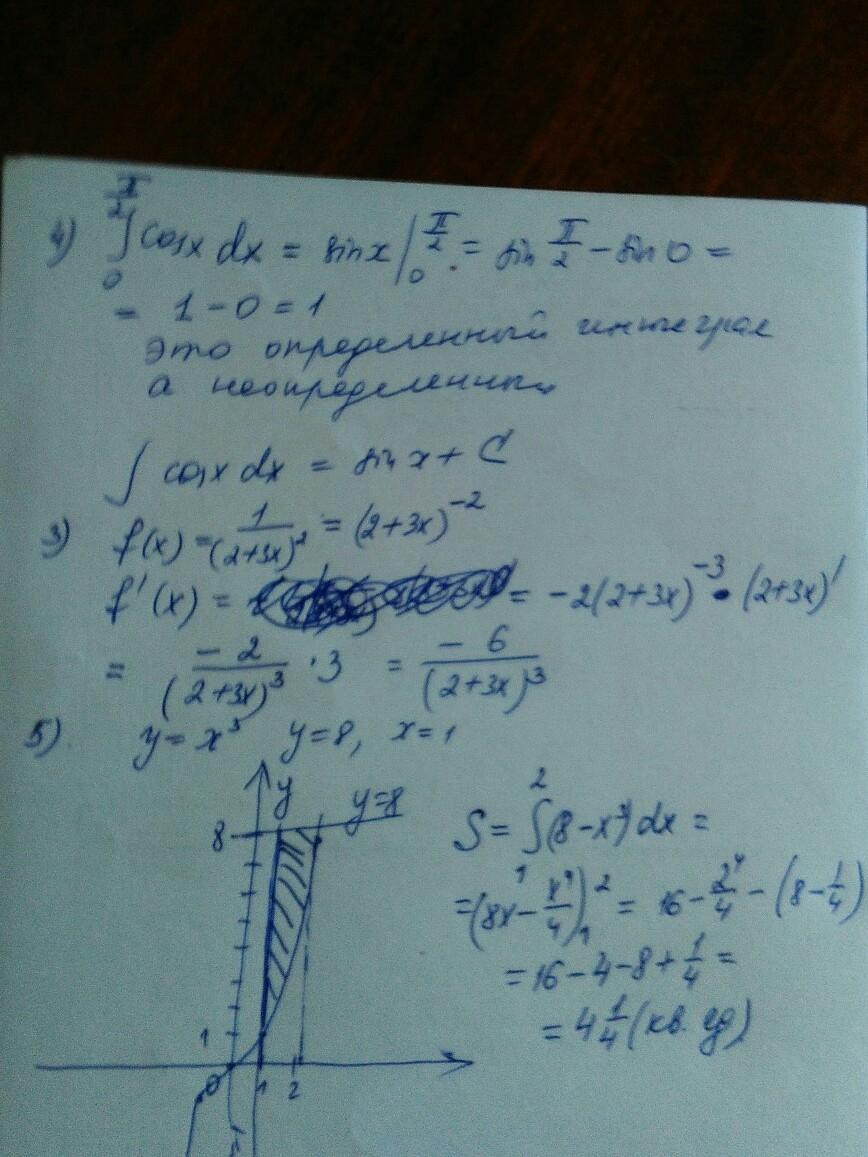 4) ∫₀^(π/2) cosx dx = sinx |₀^(π/2) = sin π/2 − sin 0 =
= 1 − 0 = 1
Это определенный интеграл
а неопределенный
∫ cosx dx = sin x + C
3) f(x) = 1/(2+3x)² = (2+3x)⁻²
f'(x) = = −2(2+3x)⁻³ • (2+3x)'
= −2/(2+3x)³ · 3 = −6/(2+3x)³
5) y = x³ y=8, x=1
y
y=8
8
1
0
1 2
S = ∫₁² (8−x³) dx =
= (8x − x⁴/4)₁² = 16 − 2⁴/4 − (8 − 1/4)
= 16 − 4 − 8 + 1/4 =
= 4 1/4 (кв. ед)